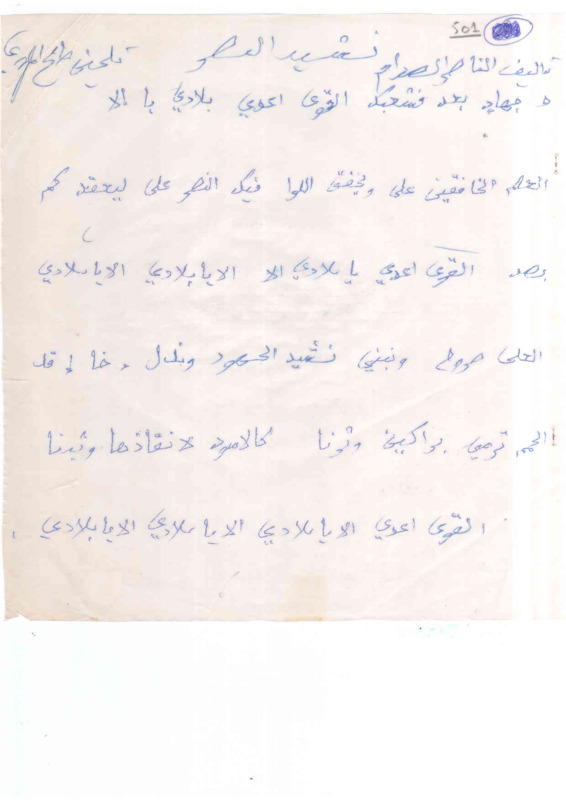 501
نشيد النصر
تأليف الناصر الصدام تلحين صالح المهدي
ه جهاد بعد فشعبك القوى اعدي بلادي يا الا
العلم الخافقين على ويخفق اللوا فيك النصر على ليعقد كم
بعد القوى اعدي يا بلادي الا الايابلادي الايابلادي
العلى صروح ونبني نشيد الجهود ونبذل خا إ قد
الحمم ترمي براكين وثرنا كالاسود لانقاذها وثبنا
القوى اعدي الايابلادي الايابلادي الايابلادي .